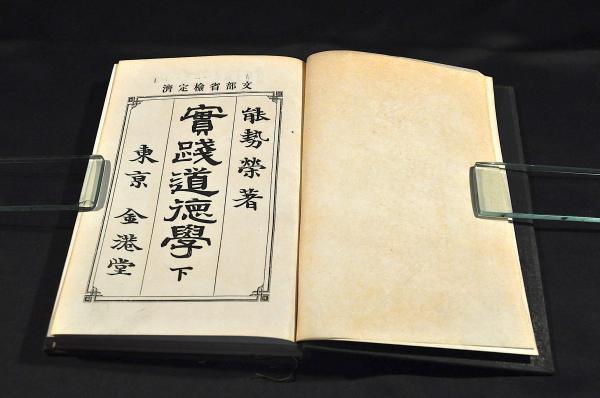 文部省檢定濟
能勢榮著
實踐道德學下
東京 金港堂